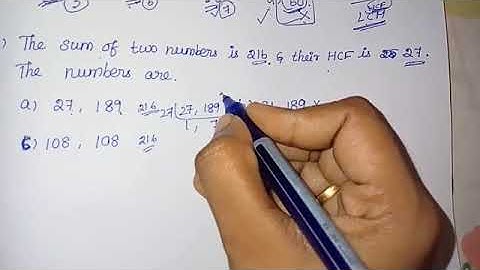 5 6 7 60 HCF
LCM
) The sum of two numbers is 216 & their HCF is 27.
The numbers are.
a) 27, 189 216 27 27, 189 189 x
1, 7
b) 108, 108 216